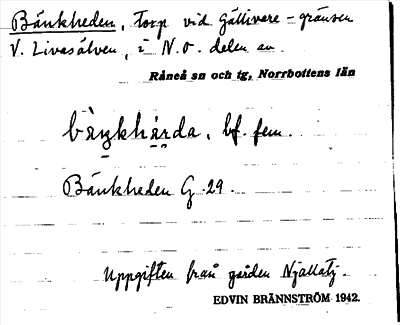 Bänkheden, torp vid Gällivare-gränsen
V. Livasälven, i N.O. delen av
Råneå sn och tg, Norrbottens län
bf. fem.
Bänkheden G 29.
Uppgiften från gården Njallatj.
EDVIN BRÄNNSTRÖM 1942.